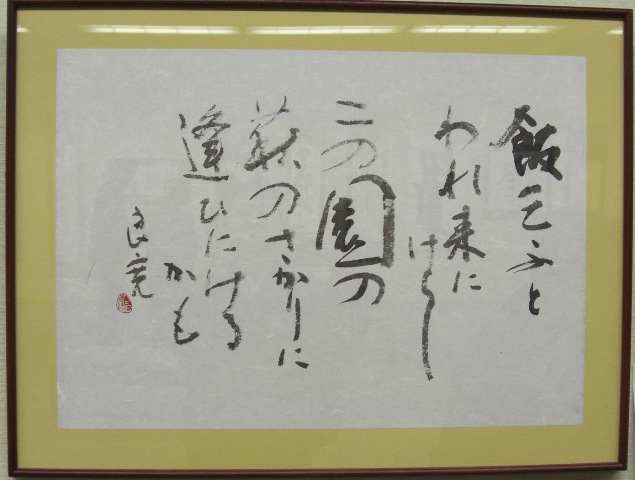 飯乞ふと
われ来に
けらし
この園の
萩のさかりに
逢ひにける
かも
良寛